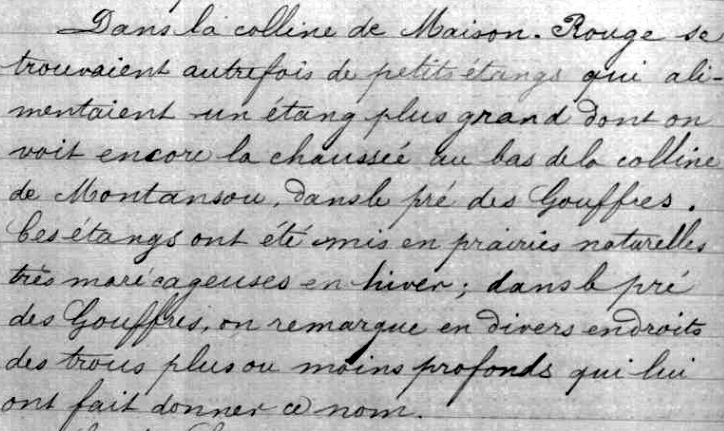 Dans la colline de Maison-Rouge se
trouvaient autrefois de petits étangs qui ali-
mentaient un étang plus grand dont on
voit encore la chaussée au bas de la colline
de Montansou, dans le pré des Gouffres.
Ces étangs ont été mis en prairies naturelles
très marécageuses en hiver ; dans le pré
des Gouffres, on remarque en divers endroits
des trous plus ou moins profonds qui lui
ont fait donner ce nom.